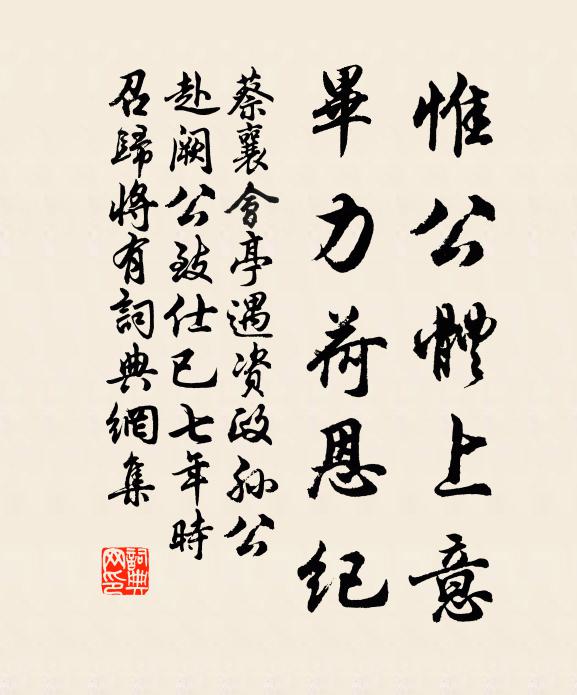 惟公體上意
畢力荷恩紀
蔡襄會亭遇資政孙公
赴阙公致仕已七年時
召歸将有詞典網集
詞典网印